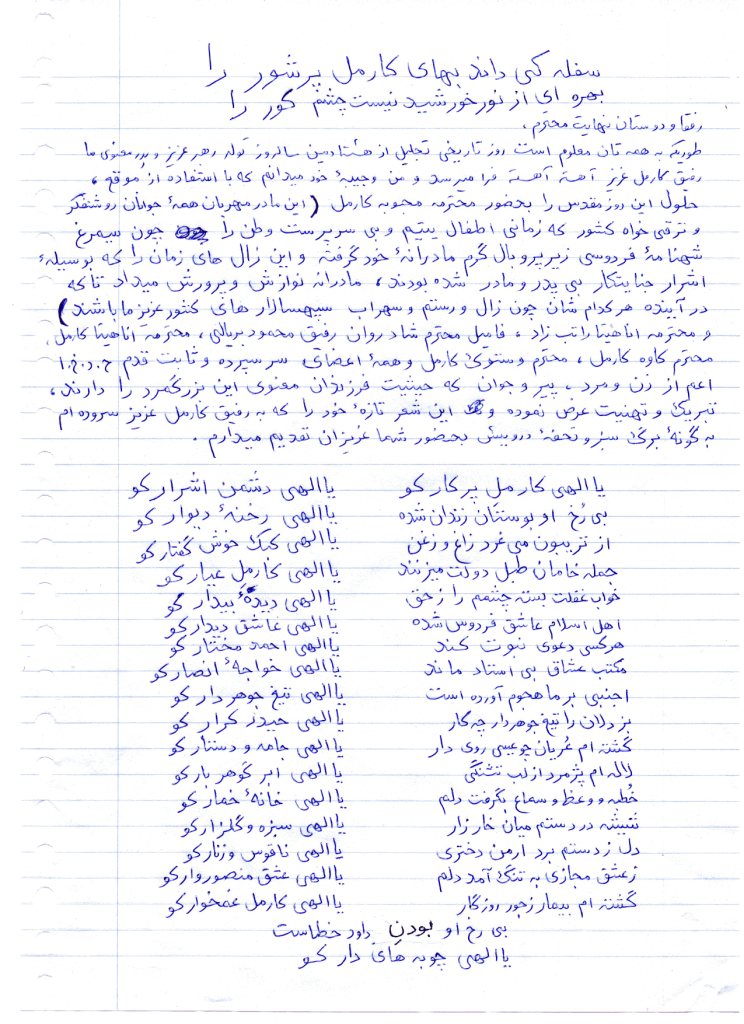 سفله کی داند بهای کارمل پرشور را
بهره ای از نور خورشید نیست چشم کور را
رفقا و دوستان نهایت محترم،
طوریکه به همه تان معلوم است روز تاریخی تجلیل از هشتادمین سالروز تولد رهبر عزیز و پدر معنوی ما
رفیق کارمل عزیز آهسته آهسته فرا میرسد و من وجیبهٔ خود میدانم که با استفاده از موقع،
حلول این روز مقدس را بحضور محترمه محبوبه کارمل (این مادر مهربان همهٔ جوانان روشنفکر
و ترقی خواه کشور که زمانی اطفال یتیم و بی سرپرست وطن را چون سیمرغ
شهنامهٔ فردوسی زیر پر و بال گرم مادرانهٔ خود گرفته و این زال های زمان را که بوسیلهٔ
اشرار جنایتکار بی پدر و مادر شده بودند، مادرانه نوازش و پرورش میداد تا که
در آینده هر کدام شان چون زال و رستم و سهراب سپهسالار های کشور عزیز ما باشند)
و محترمه اناهیتا راتب زاد، فامیل محترم شادروان رفیق محمود بریالی، محترمه اناهیتا کارمل
محترم کاوه کارمل، محترم وستوک کارمل و همهٔ اعضای سر سپرده و ثابت قدم ح.د.خ.ا
اعم از زن و مرد، پیر و جوان که حیثیت فرزندان معنوی این بزرگمرد را دارند،
تبریک و تهنیت عرض نموده و این شعر تازهٔ خود را که به رفیق کارمل عزیز سروده ام
به گونهٔ برگ سبز و تحفهٔ درویش بحضور شما عزیزان تقدیم میدارم.
یا الهی کارمل پرکار کو یا الهی دشمن اشرار کو
بی رُخ او بوستان زندان شده یا الهی رخنهٔ دیوار کو
از تریبون می غرد زاغ و زغن یا الهی کبک خوش گفتار کو
جمله خامان طبل دولت میزنند یا الهی کارمل عیار کو
خواب غفلت بسته چشمم را ز حق یا الهی دیدهٔ بیدار کو
اهل اسلام عاشق فردوس شده یا الهی عاشق دیدار کو
هر کسی دعوی نبوت کند یا الهی احمد مختار کو
مکتب عشاق بی استاد ماند یا الهی خواجهٔ انصار کو
اجنبی بر ما هجوم آورده است یا الهی تیغ جوهر دار کو
بزدلان را تیغ جوهردار چه کار یا الهی حیدر کرار کو
گشته ام عُریان چو عیسی روی دار یا الهی جامه و دستار کو
لاله ام پژمرد از لب تشنگی یا الهی ابر گوهر بار کو
خُطبه و وعظ و سماع بگرفت دلم یا الهی خانهٔ خمار کو
شیشه در دستم میان خار زار یا الهی سبزه و گلزار کو
دل ز دستم برد ارمن دختری یا الهی ناقوس و زنار کو
ز عشق مجازی به تنگ آمد دلم یا الهی عشق منصور وار کو
گشته ام بیمار ز جور روزگار یا الهی کارمل غمخوار کو
بی رخ او بودن داود خطاست
یا الهی چوبه های دار کو